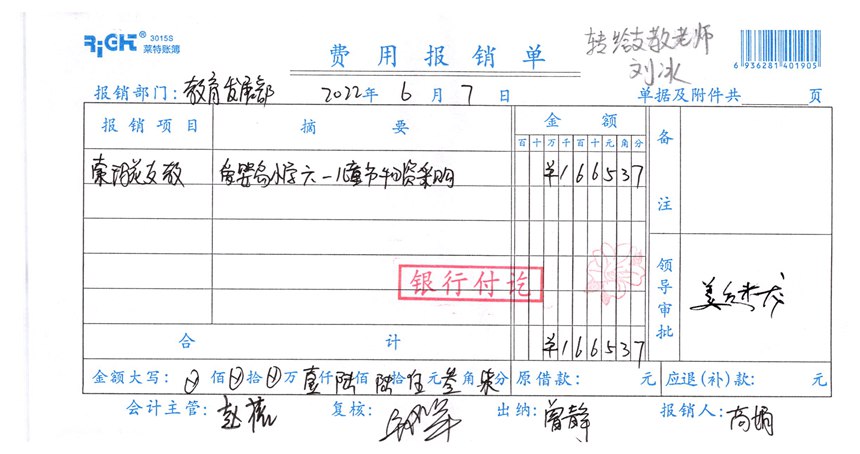 RiGHT® 3015S
莱特账簿
费用报销单
转给支敬老师
刘冰
6 936281 401905
报销部门：教育发展部 2022年 6 月 7 日 单据及附件共 页
报销项目 摘要 金额 备注
百 十 万 千 百 十 元 角 分
支教 小学六一儿童节物资采购 ¥166537
银行付讫
领导审批
合计 ¥166537
金额大写： 佰 拾 万 壹仟 陆佰 陆拾 伍元 叁角 柒分 原借款： 元 应退(补)款： 元
会计主管： 复核： 出纳：曾静 报销人：高娟